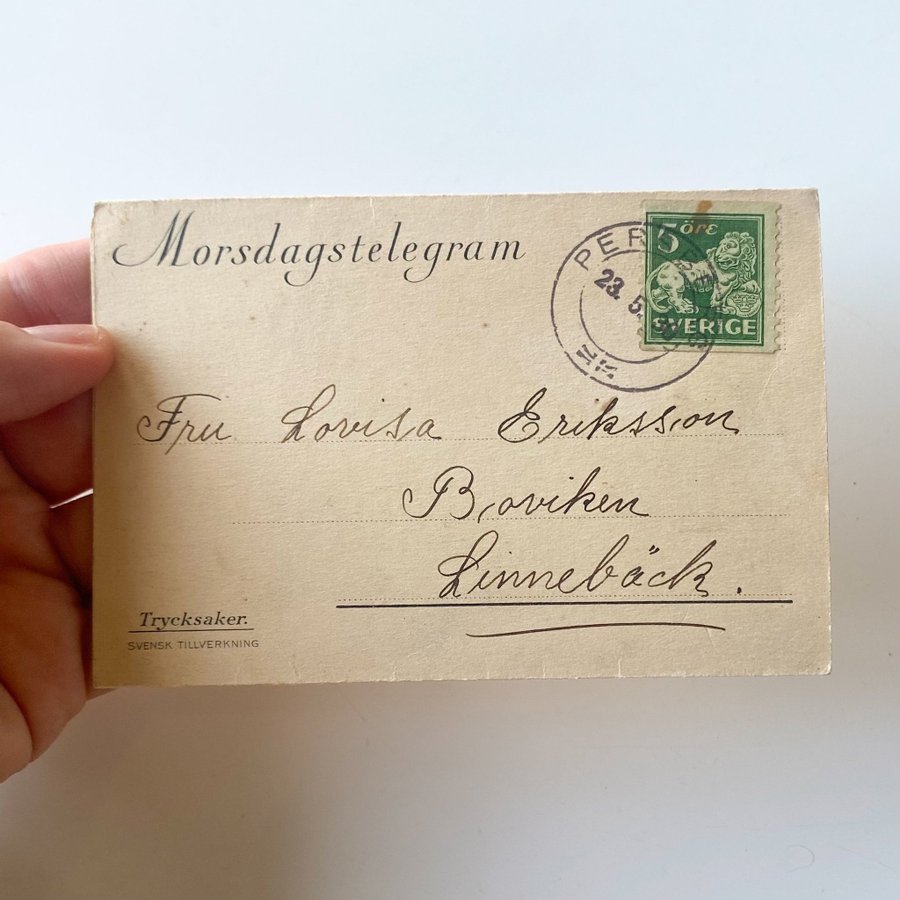 Morsdagstelegram
5 öre
SVERIGE
23. 5.
Fru Lovisa Eriksson
Boviken
Linnebäck.
Trycksaker.
SVENSK TILLVERKNING